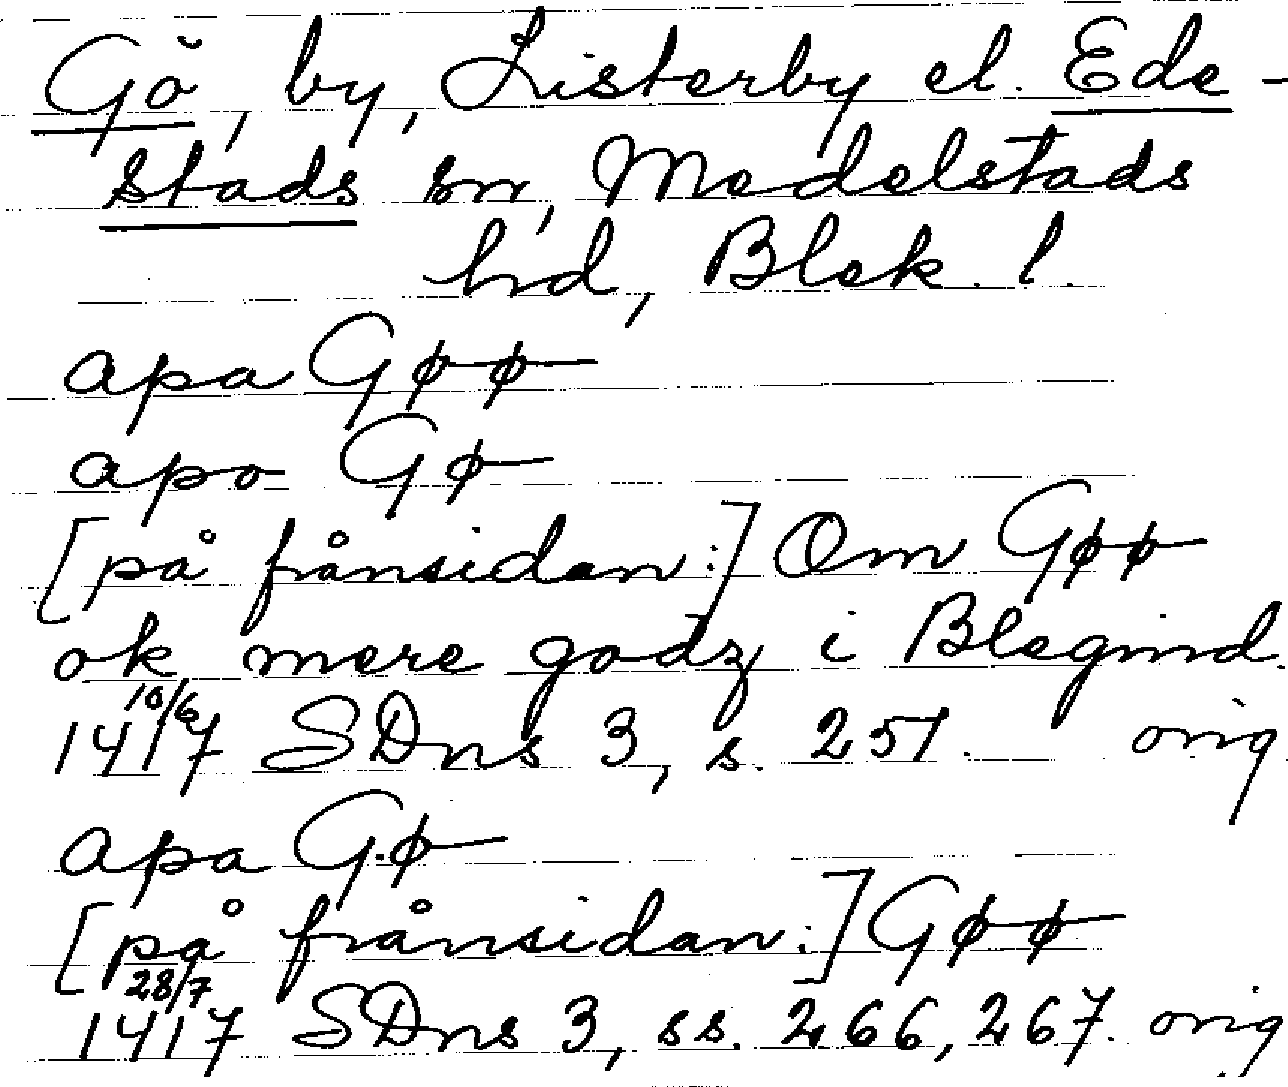 Gö, by, Listerby el. Ede-
stads sn, Medelstads
hd, Blek. l.
apa Gøø
apo Gø
[på frånsidan:] Om Gøø
ok mere godz i Blegind.
10/6
1417 SDns 3, s. 251. orig.
apa Gø
[på frånsidan:] Gøø
28/7
1417 SDns 3, ss. 266, 267. orig